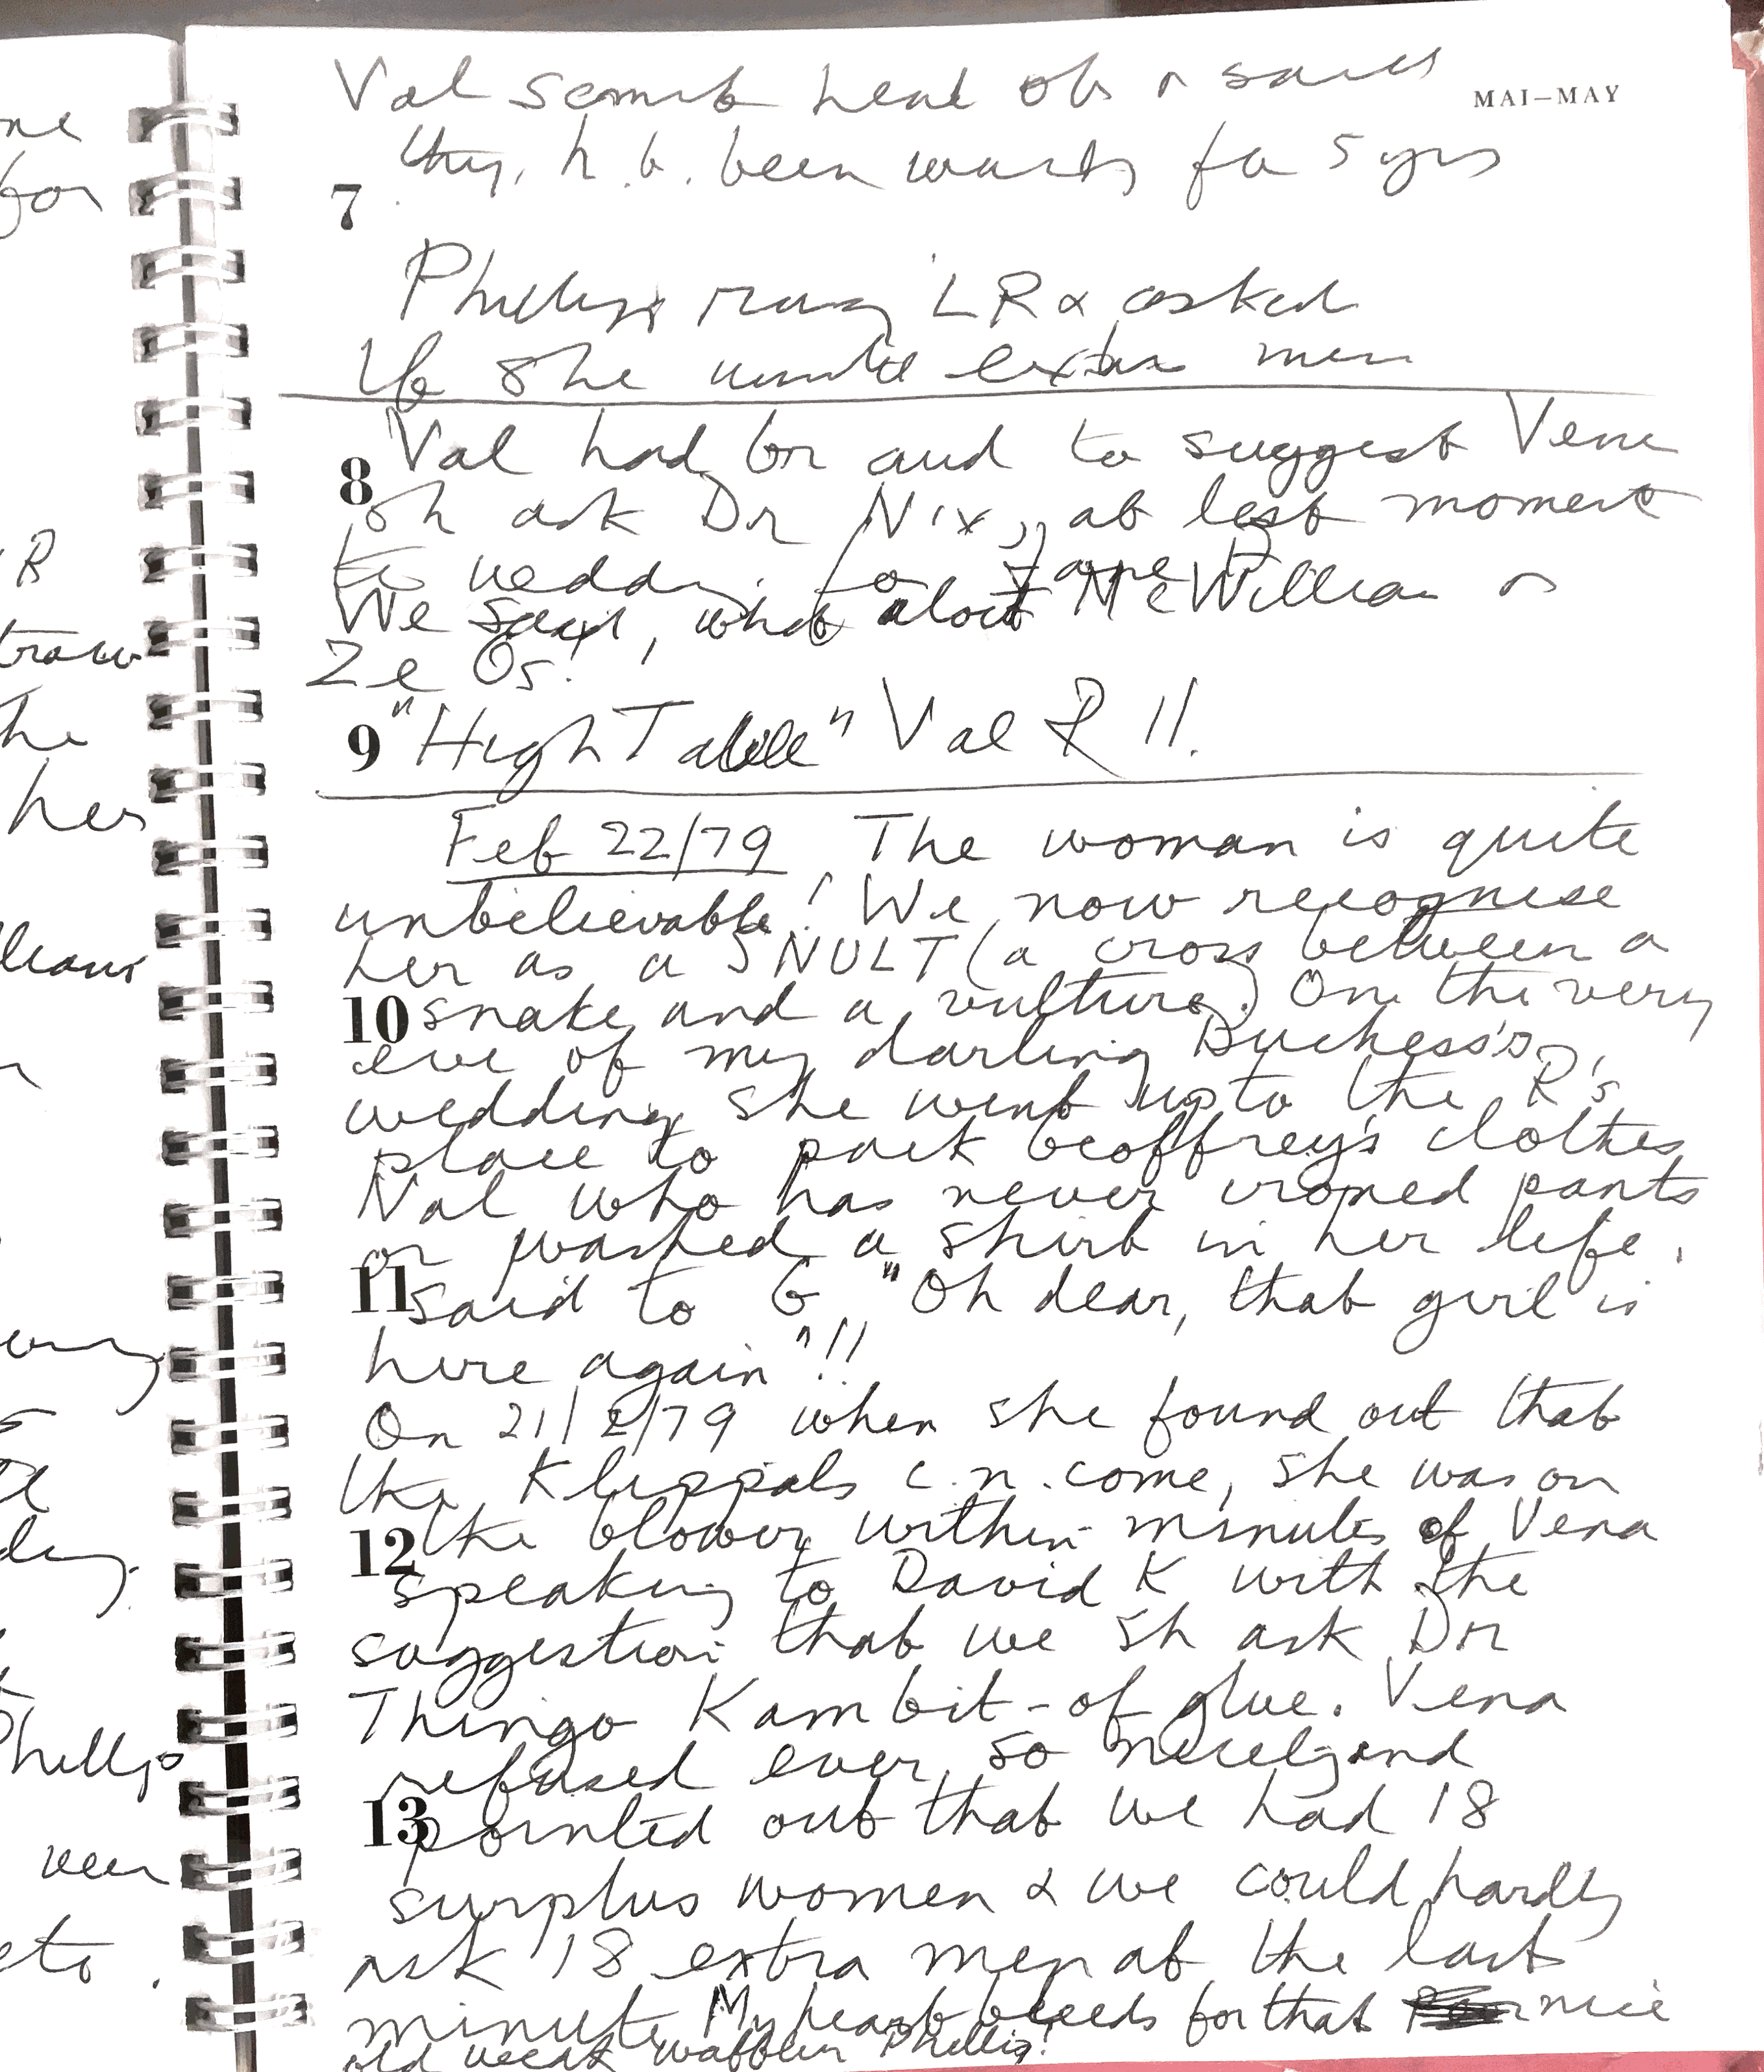 MAI–MAY
Val head of a
they, h. b. been for 5 yrs
7
Phillips rang LR & asked
if she extra men
Val had and to suggest Vena
8
sh ask Dr Nix, at last moment
to wedding for Jane P
We said, what about McWilliam or
Ze Os!
9 "High Table" Val R !!.
Feb 22/79 The woman is quite
unbelievable! We now recognise
her as a SNULT (a cross between a
10 snake and a vulture.) On the very
eve of my darling Duchess's
wedding she went up to the R's
place to pack Geoffrey's clothes
Val who has never ironed pants
or washed a shirt in her life,
11 said to G "Oh dear, that girl is
here again"!!
On 21/2/79 when she found out that
the Kluppals c.n.come, she was on
12 the blower within minutes of Vena
speaking to David K with the
suggestion that we sh ask Dr
Thingo Kambit-of glue. Vena
refused ever so nicely and
13 pointed out that we had 18
surplus women & we could hardly
ask 18 extra men at the last
minute My heart bleeds for that nice
old weak Phillip!
ne
for
B
he
her
Phillip
veen
etc.